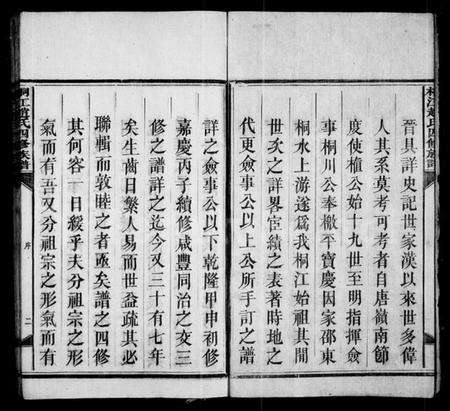 桐江趙氏四修族譜
晉具詳史記世家漢以來世多偉
人其系莫考可考者自唐嶺南節
度使植公始十九世至明指揮僉
事桐川公奉檄平寶慶因家邵東
桐水上游遂爲我桐江始祖其閒
世次之詳畧宦績之表著時地之
代更僉事公以上公所手訂之譜
詳之僉事公以下乾隆甲申初修
嘉慶丙子續修咸豐同治之交三
修之譜詳之迄今又三十有七年
矣生齒日繁人易而世益疏其必
聯輯而敦睦之者亟矣譜之四修
其何容一日緩乎夫分祖宗之形
氣而有吾又分祖宗之形氣而有
桐江趙氏四修族譜
序
二